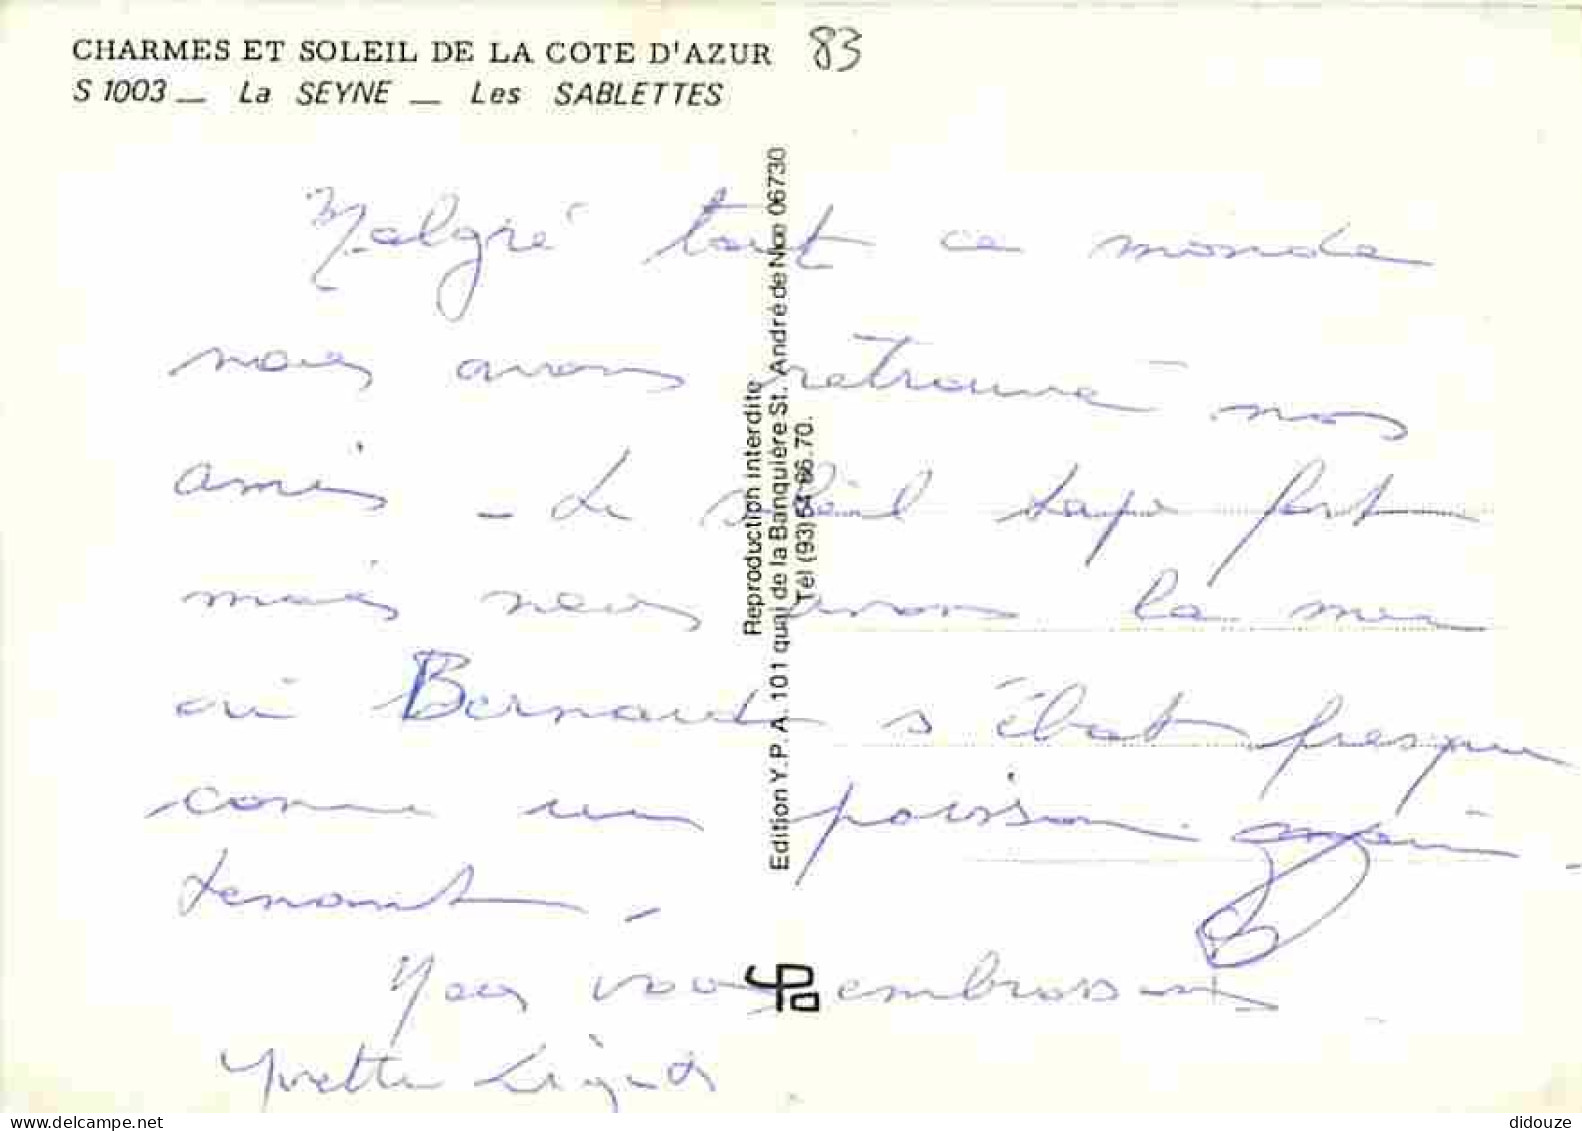 CHARMES ET SOLEIL DE LA COTE D'AZUR 83
S 1003 _ La SEYNE _ Les SABLETTES
Malgré tout ce monde
nous avons retrouvé nos
amis - Le soleil tape fort
mais nous avons la mer
où Bernard s'ébat presque
comme un poisson
maintenant.
Nous vous embrassons
Yvette
Reproduction interdite
Edition Y.P.A. 101 quai de la Banquière St. André de Nice 06730
Tél (93) 54 66.70.
YPa
didouze